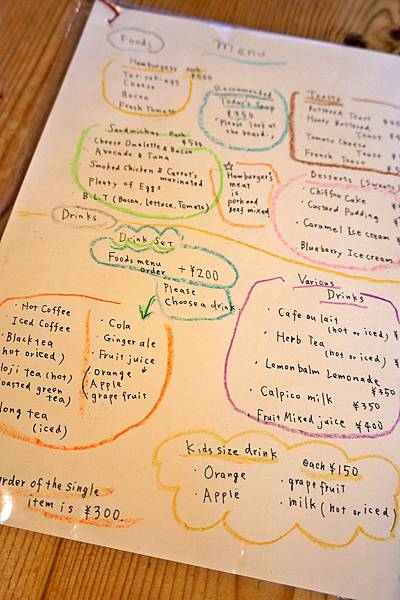 Menu
Foods
Hamburgers each ¥550
Teriyaki
Cheese
Bacon
Fresh Tomato
Recommended
Today's Soup
¥350
"Please look at
the board."
Toasts
Buttered Toast ¥
Honey Buttered
Toast ¥
Tomato Cheese
Toast ¥
French Toast ¥
Sandwiches each
¥500
Cheese Omelette & Bacon
Avocado & Tuna
Smoked Chicken & Carrot's
marinated
Plenty of Eggs
B.L.T (Bacon, Lettuce, Tomato)
☆
Hamburger's
meat
is
pork and
beef mixed.
Desserts (Sweets)
・Chiffon Cake ¥
・Custard Pudding
・Caramel Ice cream ¥
・Blueberry Ice cream
Drinks
Drink Set
Foods menu
order +¥200
Please
Choose a drink.
・Hot Coffee
・Iced Coffee
・Black tea
(hot or iced)
Hoji tea (hot)
roasted green
tea)
long tea
(iced)
・Cola
・Ginger ale
・Fruit juice
(Orange
Apple
grape fruit
order of the single
item is ¥300.
Various
Drinks
・Cafe au lait
(hot or iced) ¥
・Herb Tea
(hot or iced) ¥
・Lemonbalm Lemonade
¥350
・Calpico milk ¥350
・Fruit Mixed juice ¥400
Kids size drink each ¥150
・Orange
・Apple
・grapefruit
・milk (hot or iced)